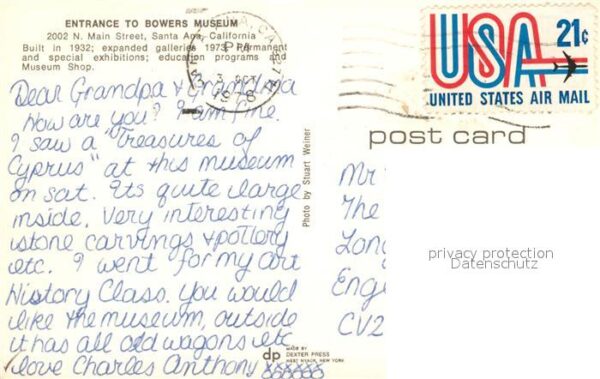 ENTRANCE TO BOWERS MUSEUM
2002 N. Main Street, Santa Ana, California
Built in 1932; expanded galleries 1973. Permanent
and special exhibitions; education programs and
Museum Shop.
Dear Grandpa & Grandma
How are you? I am fine.
I saw a "Treasures of
Cyprus" at this museum
on sat. Its quite large
inside. Very interesting
stone carvings & pottery
etc. I went for my art
History Class. You would
like the museum, outside
it has all old wagons etc
love Charles Anthony xxxxxx
Photo by Stuart Weiner
dp
MADE BY
DEXTER PRESS
WEST NYACK, NEW YORK
PM
OCT
USA 21¢
UNITED STATES AIR MAIL
post card
Mr
The
Lon
Eng
CV2
privacy protection
Datenschutz